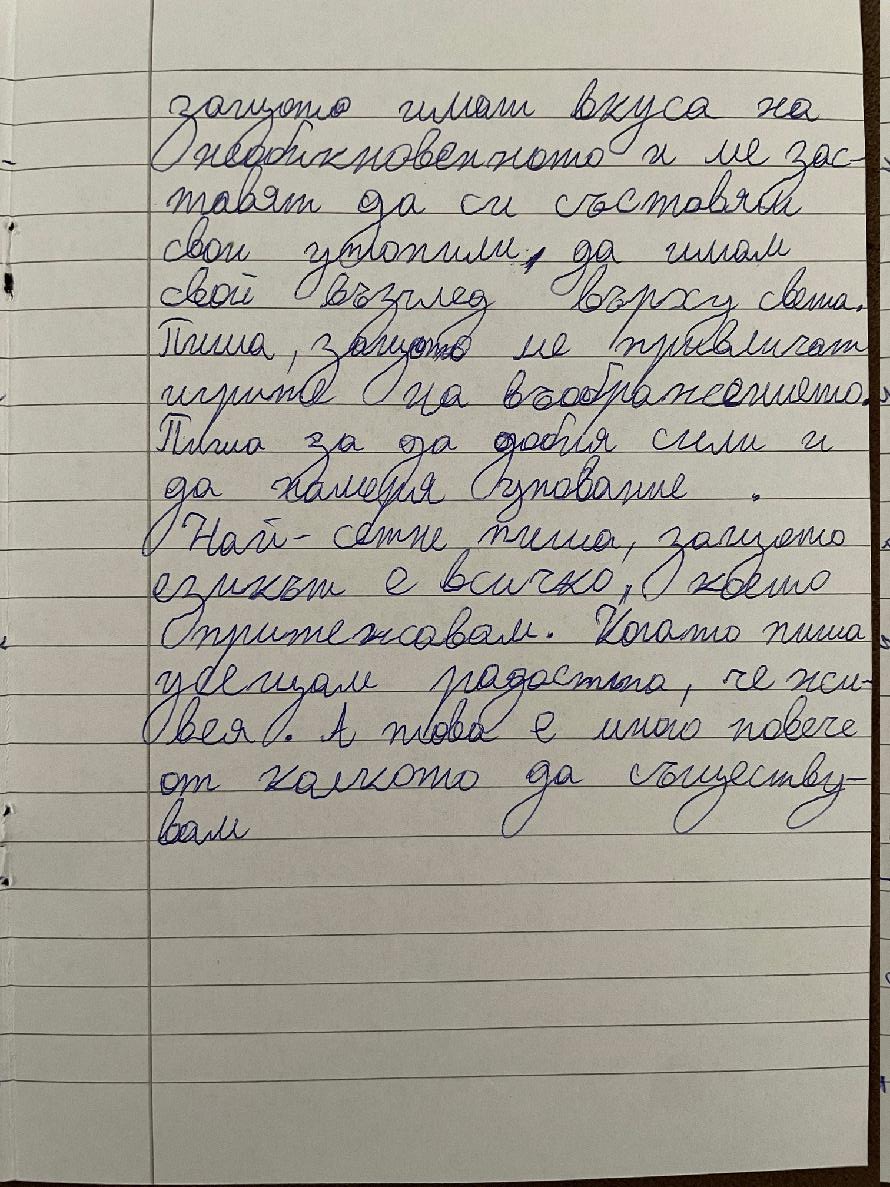 защото имат вкуса на
необикновенното и ме зас-
тавят да си съставям
свои утопили, да имам
свой възглед върху света.
Пиша, защото ме привличат
игрите на въображението.
Пиша за да добия сили и
да намеря упование .
Най- сетне пиша, защото
езикът е всичко, което
притежавам. Когато пиша
усещам радостта, че жи-
вея. А това е много повече
от колкото да съществу-
вам